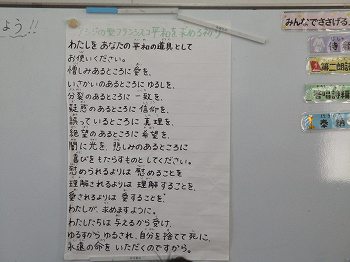 よう!!
アシジの聖フランシスコ平和を求める祈り
わたしをあなたの平和の道具として
お使いください。
憎しみあるところに愛を、
いさかいのあるところにゆるしを、
分裂のあるところに一致を、
疑惑のあるところに信仰を、
誤っているところに真理を、
絶望のあるところに希望を、
闇に光を、悲しみのあるところに
喜びをもたらすものとしてください。
慰められるよりは慰めることを
理解されるよりは理解することを、
愛されるよりは愛することを、
わたしが、求めますように。
わたしたちは与えるから受け、
ゆるすからゆるされ、自分を捨てて死に、
永遠の命をいただくのですから。
みんなでささげる
侍者
第二朗読
奉納